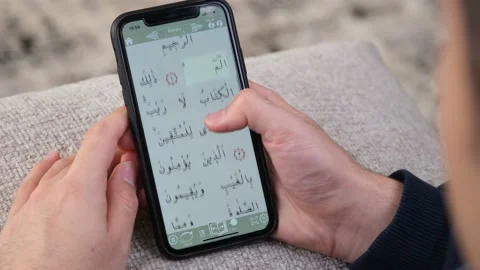 الرَّحِيمِ
الٓمٓ
ذَٰلِكَ
الْكِتَابُ لَا رَيْبَ
ى لِلْمُتَّقِينَ
الَّذِينَ يُؤْمِنُونَ
بِالْغَيْبِ وَيُقِيمُونَ
الصَّلَاةَ وَمِمَّا